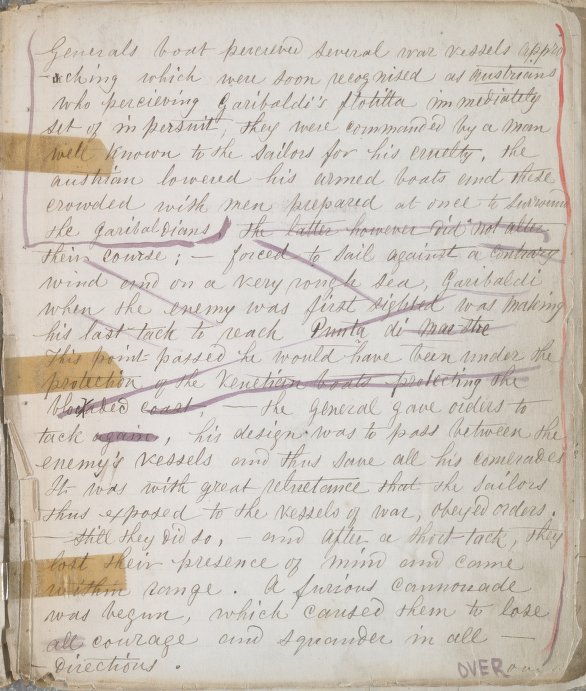 Generals boat percieved several war vessels appro
-aching which were soon recognised as austrians
who percieving Garibaldi's flotitta immediately
set of in persuit, they were commanded by a man
well known to the sailors for his cruelty. the
austrian lowered his armed boats and these
crowded with men prepared at once to surround
the garibaldians, the latter however did not alter
their course; - forced to sail against a contrary
wind and on a very rough sea, Garibaldi
when the enemy was first sighted was making
his last tack to reach Punta di Maestre
This point passed he would have been under the
protection of the Venetian boats protecting the
coast, - the General gave orders to
tack again, his design was to pass between the
enemy's vessels and thus save all his comerades
It was with great reluctance that the sailors
thus exposed to the vessels of war, obeyed orders.
- still they did so, - and after a short tack, they
lost their presence of mind and came
within range. A furious cannonade
was begun, which caused them to lose
all courage and squander in all -
- directions.
OVER